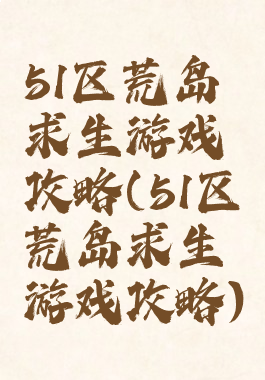 51区荒岛
求生游戏
攻略(51区
荒岛求生
游戏攻略)